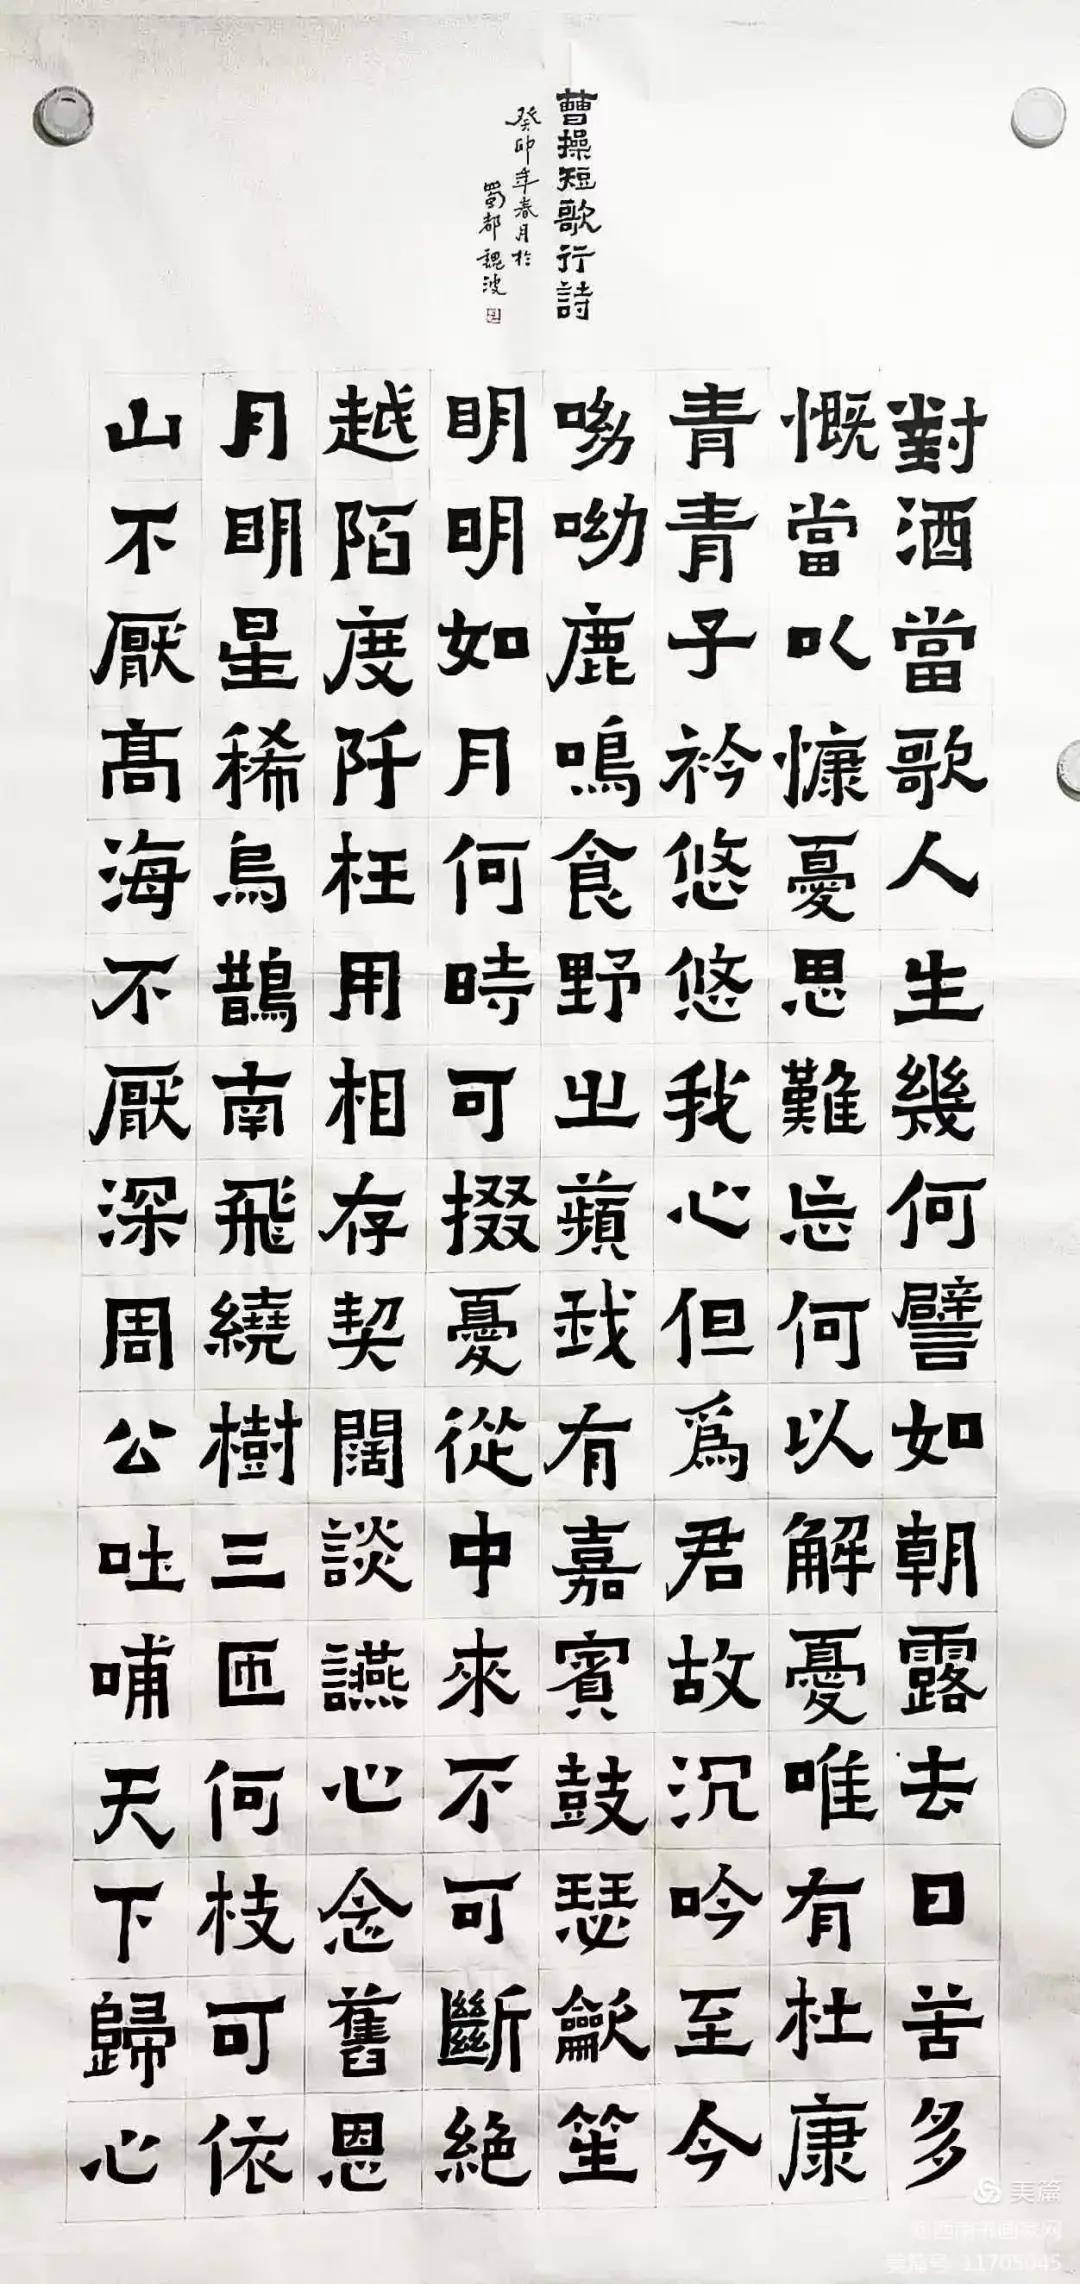 曹操短歌行詩
癸卯年春月於
蜀都魏波
對酒當歌人生幾何譬如朝露去日苦多
慨當以慷憂思難忘何以解憂唯有杜康
青青子衿悠悠我心但爲君故沉吟至今
呦呦鹿鳴食野之蘋我有嘉賓鼓瑟龡笙
明明如月何時可掇憂從中來不可斷絶
越陌度阡枉用相存契闊談讌心念舊恩
月明星稀烏鵲南飛繞樹三匝何枝可依
山不厭髙海不厭深周公吐哺天下歸心
美篇
@西南书画家网
美篇号:11705045